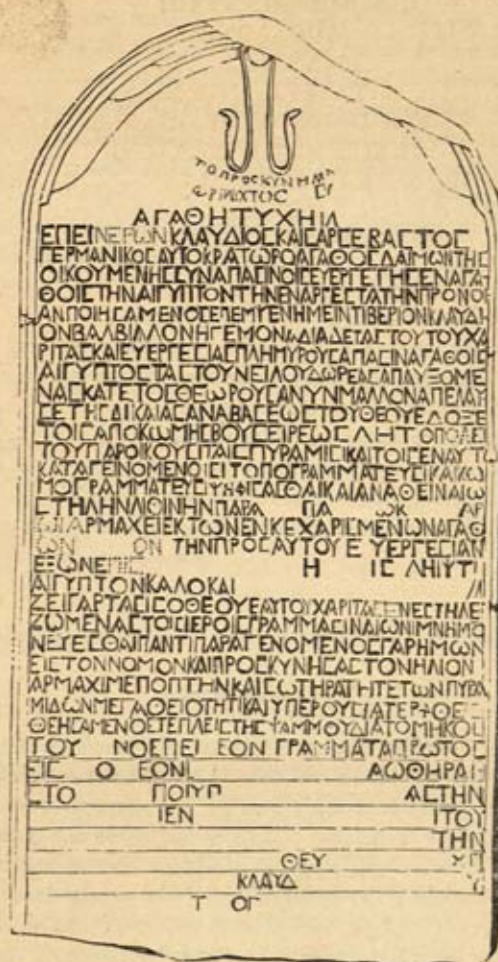 ΤΟ ΠΡΟΣΚΥΝΗΜΑ
ΑΓΑΘΗΤΥΧΗΙ
ΕΠΕΙΝΕΡΩΝΚΛΑΥΔΙΟΣΚΑΙΣΑΡΣΕΒΑΣΤΟΣ
ΓΕΡΜΑΝΙΚΟΣΑΥΤΟΚΡΑΤΩΡΟΑΓΑΘΟΣΔΑΙΜΩΝΤΗΣ
ΟΙΚΟΥΜΕΝΗΣΣΥΝΑΠΑΣΙΝΟΙΣΕΥΕΡΓΕΤΗΣΕΝΑΓΑ
ΘΟΙΣΤΗΝΑΙΓΥΠΤΟΝΤΗΝΕΝΑΡΓΕΣΤΑΤΗΝΠΡΟΝΟΙ
ΑΝΠΟΙΗΣΑΜΕΝΟΣΕΠΕΜΨΕΝΗΜΕΙΝΤΙΒΕΡΙΟΝΚΛΑΥΔΙ
ΟΝΒΑΛΒΙΛΛΟΝΗΓΕΜΟΝΑΔΙΑΔΕΤΑΣΤΟΥΤΟΥΧΑ
ΡΙΤΑΣΚΑΙΕΥΕΡΓΕΣΙΑΣΠΛΗΜΥΡΟΥΣΑΠΑΣΙΝΑΓΑΘΟΙΣ
ΑΙΓΥΠΤΟΣΤΑΣΤΟΥΝΕΙΛΟΥΔΩΡΕΑΣΕΠΑΥΞΟΜΕ
ΝΑΣΚΑΤΕΤΟΣΘΕΩΡΟΥΣΑΝΥΝΜΑΛΛΟΝΑΠΕΛΑΥ
ΣΕΤΗΣΔΙΚΑΙΑΣΑΝΑΒΑΣΕΩΣΤΟΥΘΕΟΥΕΔΟΞΕ
ΤΟΙΣΑΠΟΚΩΜΗΣΒΟΥΣΕΙΡΕΩΣΛΗΤΟΠΟΛΕΙ
ΤΟΥΠΑΡΟΙΚΟΥΣΠΑΙΣΠΥΡΑΜΙΣΙΚΑΙΤΟΙΣΕΝΑΥΤΩ
ΚΑΤΑΓΕΙΝΟΜΕΝΟΙΣΙΤΟΠΟΓΡΑΜΜΑΤΕΥΣΙΚΑΙΚΩ
ΜΟΓΡΑΜΜΑΤΕΥΣΙΨΗΦΙΣΑΣΘΑΙΚΑΙΑΝΑΘΕΙΝΑΙ
ΣΤΗΛΗΝΛΙΘΙΝΗΝΠΑΡΑ
ΑΡΜΑΧΕΙΕΚΤΩΝΕΝΚΕΧΑΡΙΣΜΕΝΩΝΑΓΑΘ
ΩΝ ΤΗΝΠΡΟΣΑΥΤΟΥΕΥΕΡΓΕΣΙΑΝ
ΕΞΩΝΕΠΙΣ
ΑΙΓΥΠΤΟΝΚΑΛΟΚΑΙ
ΖΕΙΓΑΡΤΑΣΙΣΟΘΕΟΥΣΑΥΤΟΥΧΑΡΙΤΑΣΕΝΕΣΤΗΛΕ
ΖΩΜΕΝΑΣΤΟΙΣΙΕΡΟΙΣΓΡΑΜΜΑΣΙΝΑΙΩΝΙΜΝΗΜΟ
ΝΕΥΕΣΘΑΙΠΑΝΤΙΠΑΡΑΓΕΝΟΜΕΝΟΣΓΑΡΗΜΩΝ
ΕΙΣΤΟΝΝΟΜΟΝΚΑΙΠΡΟΣΚΥΝΗΣΑΣΤΟΝΗΛΙΟΝ
ΑΡΜΑΧΙΜΕΠΟΠΤΗΝΚΑΙΣΩΤΗΡΑΤΗΤΕΤΩΝΠΥΡΑ
ΜΙΔΩΝΜΕΓΑΘΕΙΟΤΗΤΙΚΑΙΥΠΕΡΟΥΣΙΑΤΕΡΦΘΕΣ
ΘΕΗΣΑΜΕΝΟΣΤΕΠΛΕΙΣΤΗΣΨΑΜΜΟΥΔΙΑΤΟΜΗΚΟΣ
ΤΟΥ ΝΟΕΠΕΙ ΕΟΝ ΓΡΑΜΜΑΤΑΠΡΩΤΟΣ
ΕΙΣ Ο ΕΟΝΙ ΑΩΘΗΡΑΙ
ΣΤΟ ΠΟΙΥΠ ΑΣΤΗΝ
ΙΕΝ ΙΤΟΥ
ΤΗΝ
ΘΕΥ ΥΠ
ΚΛΑΥΔ
Τ ΟΓ